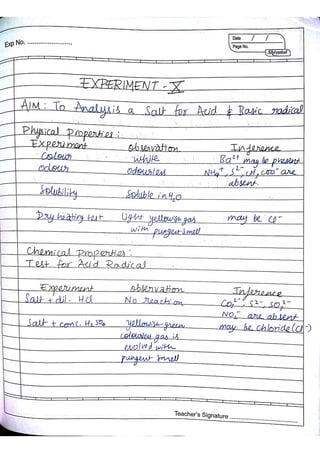 Date / /
Page No.
Exp No.
EXPERIMENT - X
AIM: To Analysis a Salt for Acid & Basic radical
Physical Properties:
Experiment observation Inference
Colour white Ba²⁺ may be present
odour odourless NH₄⁺, S²⁻, CH₃COO⁻ are absent.
Solubility Soluble in H₂O
Dry heating test Light yellowish gas with pungent smell may be Cl⁻
Chemical Properties:
Test for Acid Radical
Experiment observation Inference
Salt + dil. HCl No reaction CO₃²⁻, S²⁻, SO₃²⁻
NO₂⁻ are absent
Salt + conc. H₂SO₄ yellowish-green may be chloride (Cl⁻)
gas is
evolved with
pungent smell
Teacher's Signature